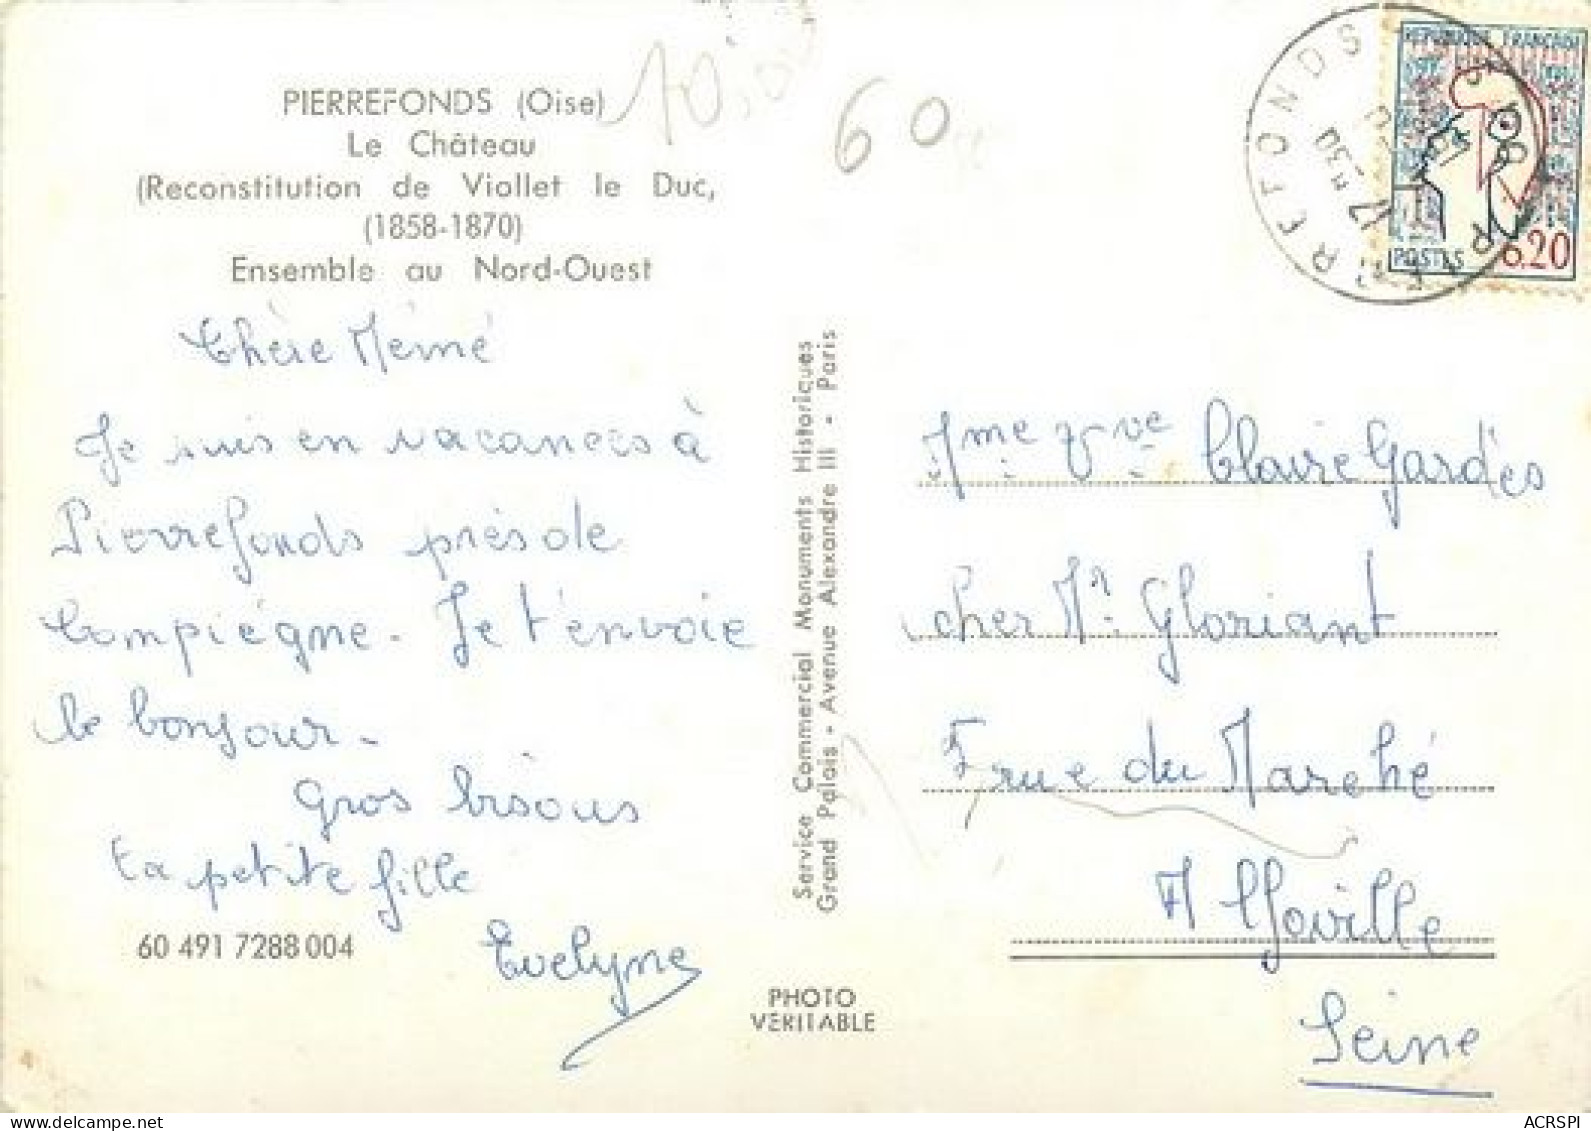 PIERREFONDS (Oise)
Le Château
(Reconstitution de Viollet le Duc,
(1858-1870)
Ensemble au Nord-Ouest
10,00
60
Chère Mémé
Je suis en vacances à
Pierrefonds près de
Compiégne. Je t'envoie
le bonjour.
Gros bisous
ta petite fille
Evelyne
60 491 7288 004
PHOTO
VÉRITABLE
Service Commercial Monuments Historiques
Grand Palais - Avenue Alexandre III - Paris
REPUBLIQUE FRANÇAISE
POSTES
0.20
PIERREFONDS
17 H 30
Mme Vve Claire Gardès
cher Mr Gloriant
7 rue du Marché
Alfoville
Seine
ACRSPI